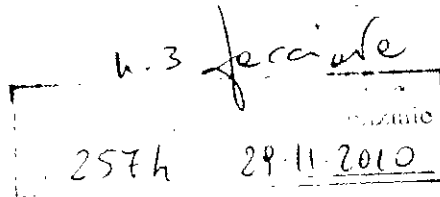 n. 3 facciate
2574 29.11.2010